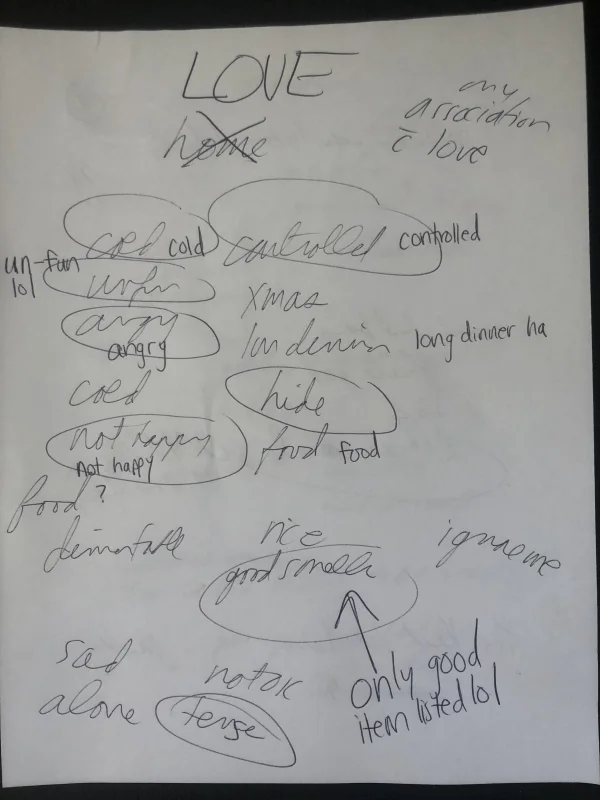 LOVE
home
my
association
c̄ love
cold cold controlled controlled
un-fun
lol
unfun xmas
angry
angry long dinner ha
cold hide
not happy
not happy food food
food ?
dinner table rice ignore me
good smells
sad not ok only good
alone tense item listed lol